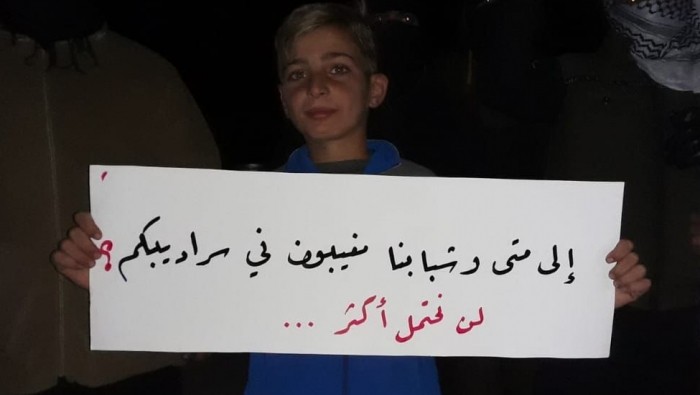 إلى متى وشبابنا مغيبون في سراديبكم ؟
لن نحتمل أكثر ...